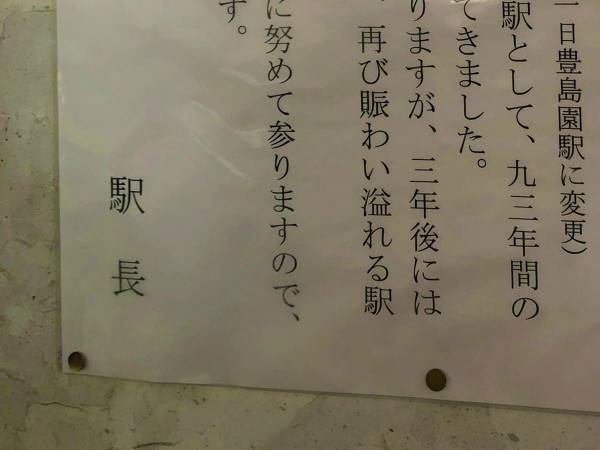 一日豊島園駅に変更）
駅として、九三年間の
てきました。
りますが、三年後には
、再び賑わい溢れる駅
に努めて参りますので、
す。
駅長